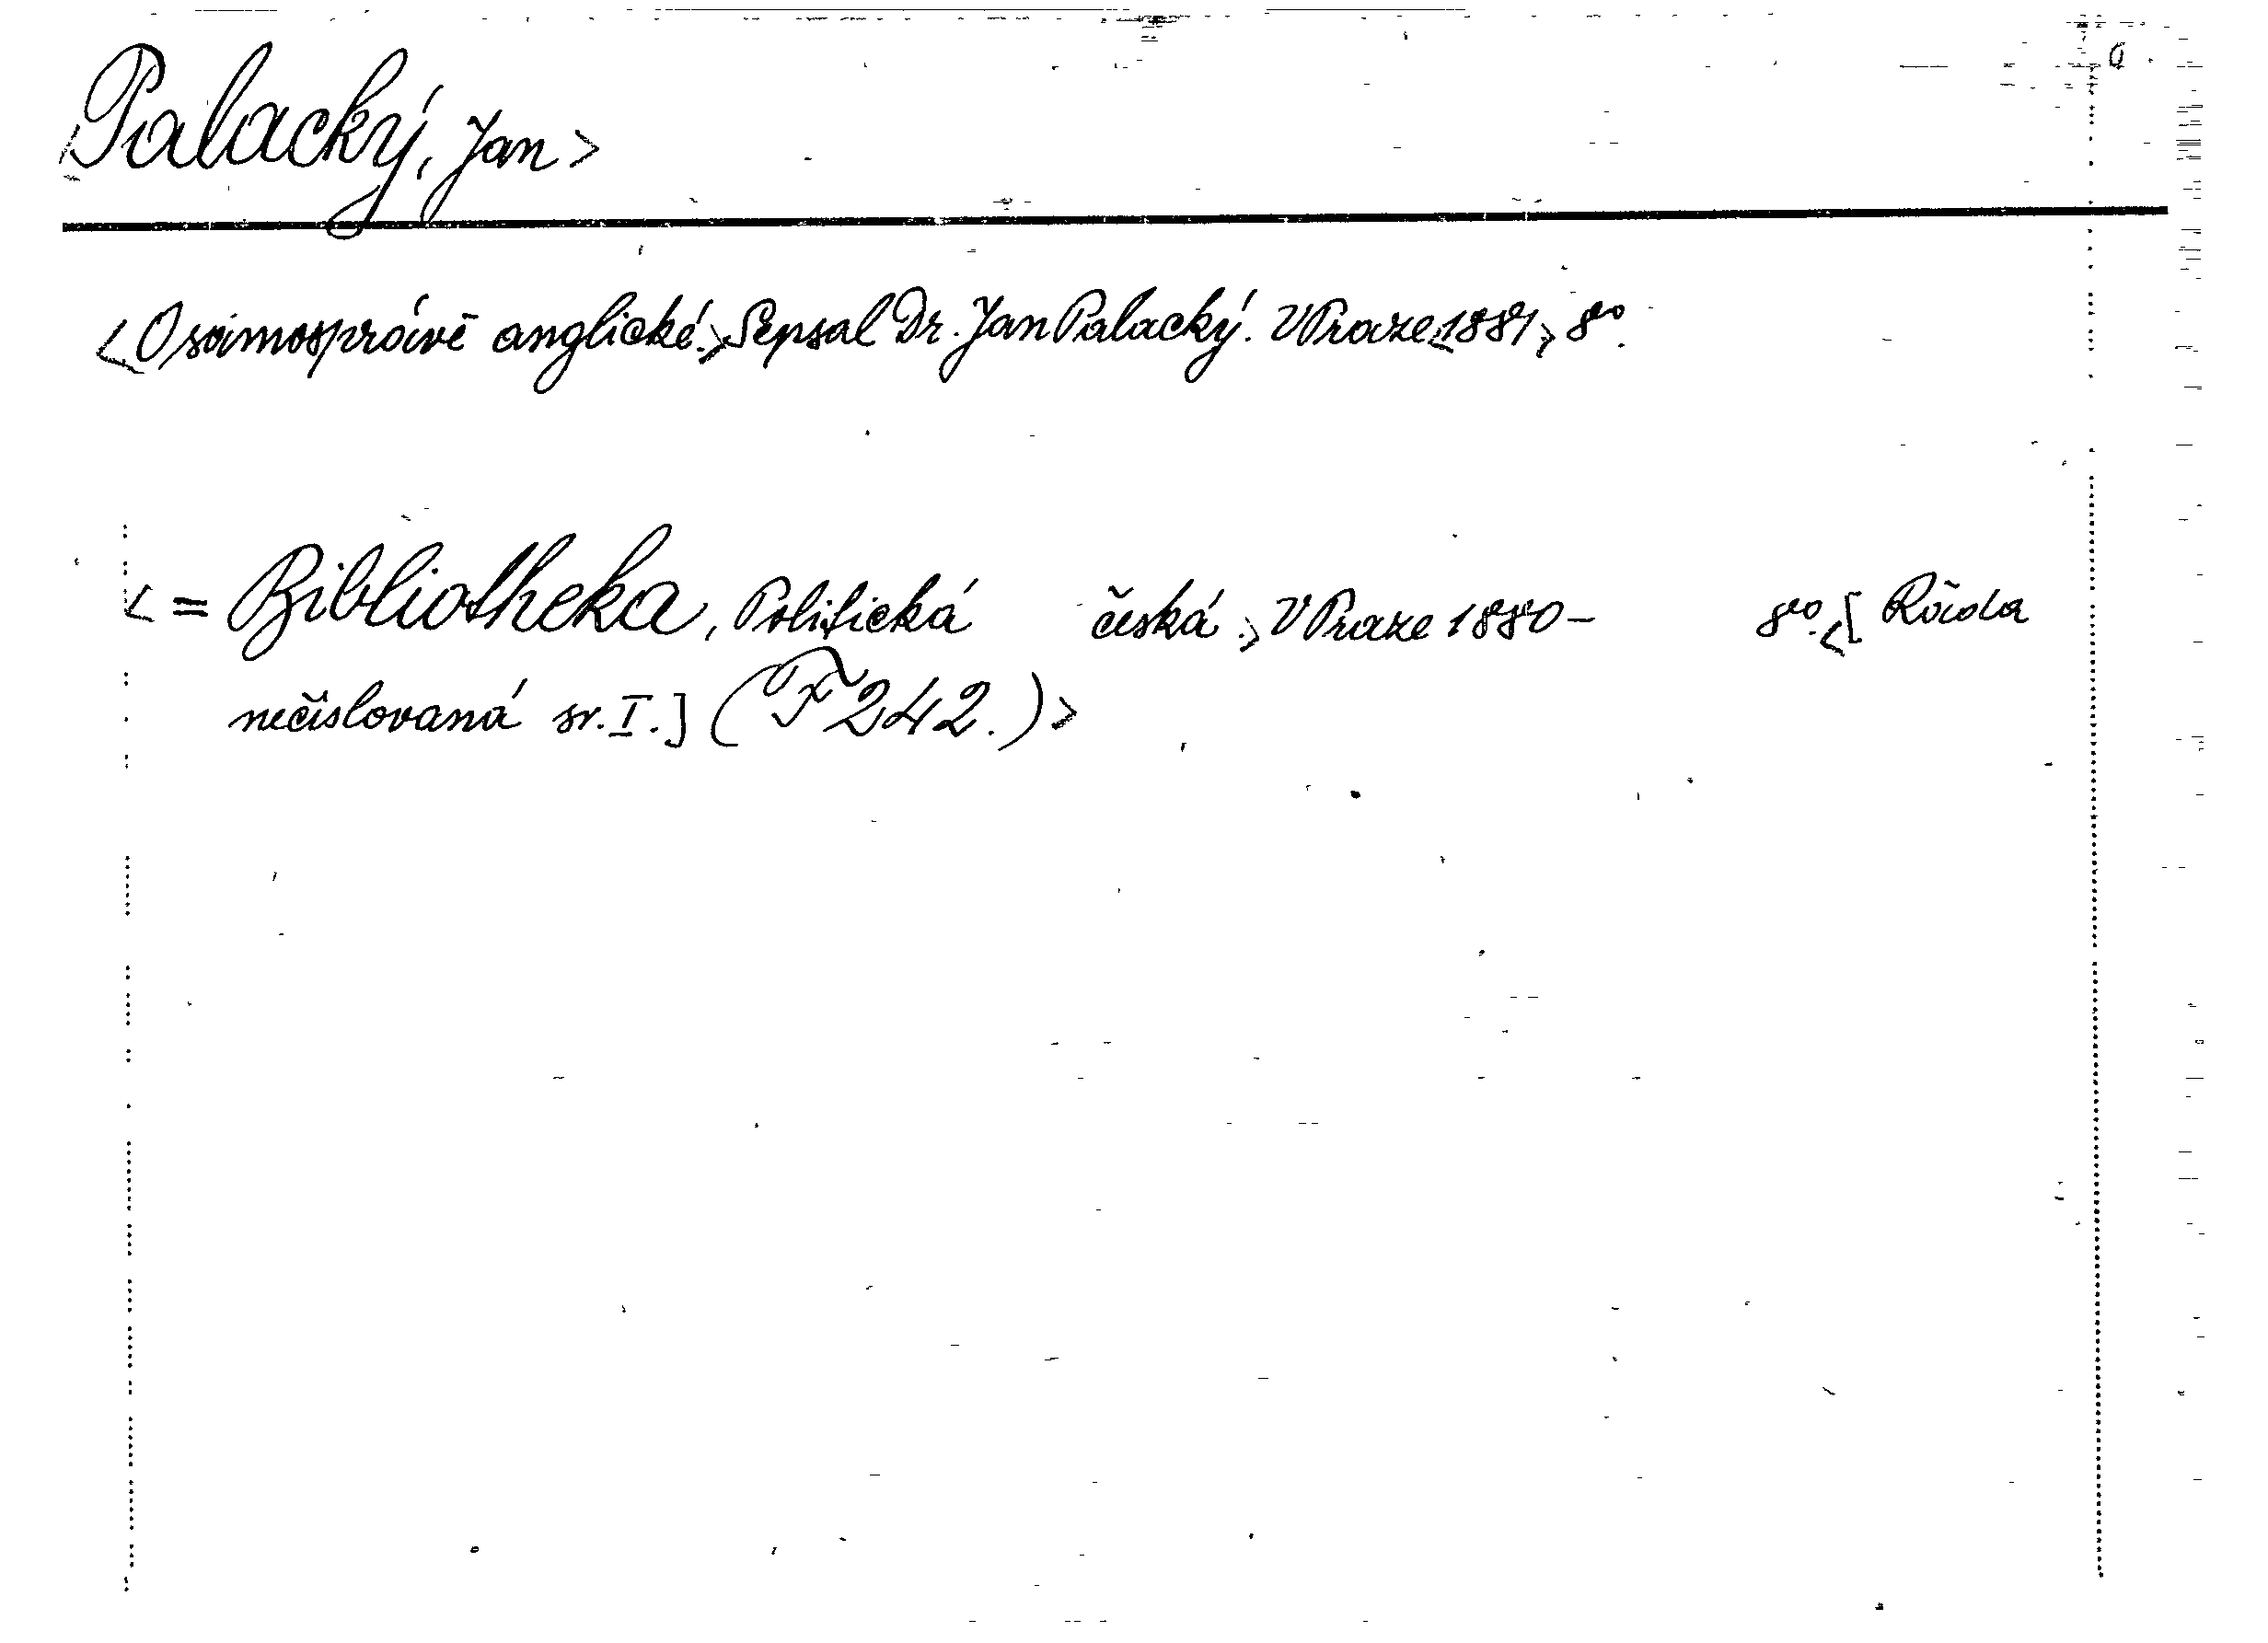 <Palacký, Jan>
<O samosprávě anglické.> Sepsal Dr. Jan Palacký. V Praze <1881,> 8vo.
<= Bibliotheka, Politická česká.> V Praze 1880- 8vo. <[Řada
nečíslovaná sv. I.] (F 242.)>